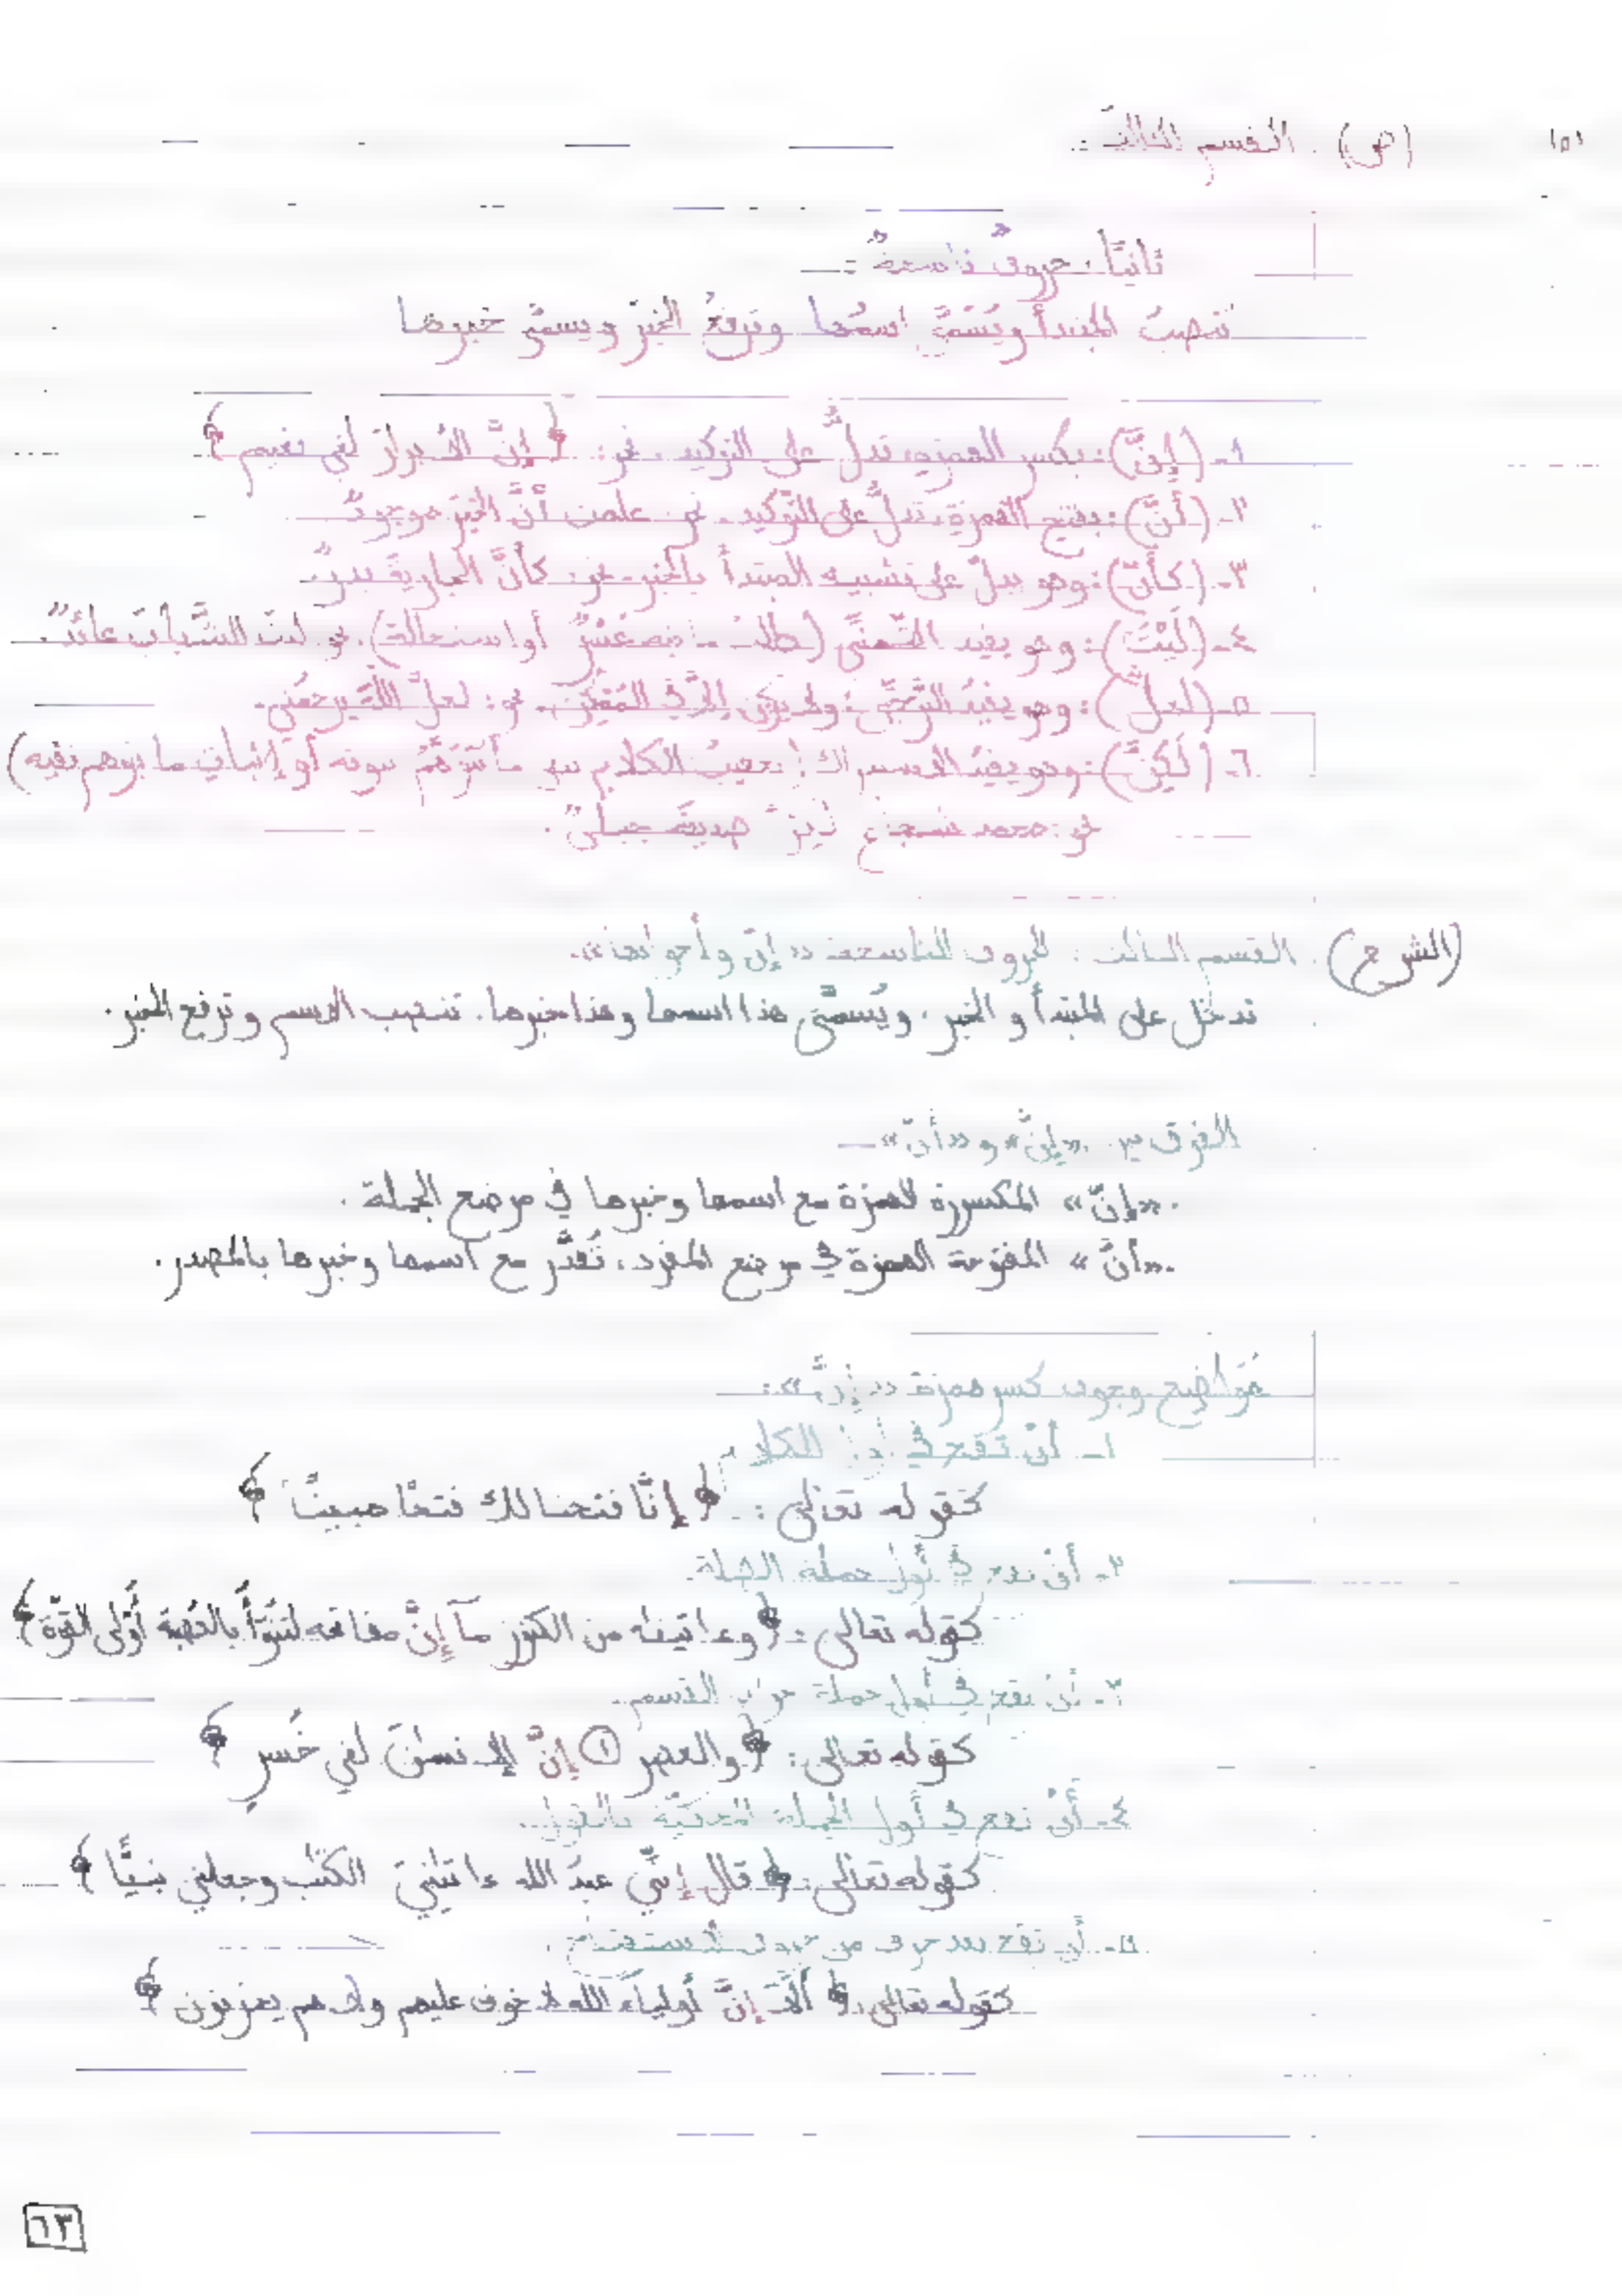 (ص) القسم الثالث :
ثانيًا : حروفٌ ناسخةٌ :
تنصبُ المبتدأ ويُسَمَّى اسمُها وترفعُ الخبرَ ويسمَّى خبرها
١- (إنَّ) : بكسر الهمزة، تدلُّ على التوكيد، نحو : ﴿إنَّ الأبرارَ لفي نعيم﴾
٢- (أنَّ) : بفتح الهمزة، تدلُّ على التوكيد. نحو علمت أنَّ الخيرَ موجودٌ
٣- (كأنَّ) : وهو يدلُّ على تشبيه المبتدأ بالخبر. نحو: كأنَّ الجاريةَ بدرٌ.
٤- (لَيْتَ) : وهو يفيد التَّمنِّي (طلبُ ما فيه عُسْرٌ أو استحالة). نحو ليتَ الشَّبابَ عائدٌ.
٥- (لعلَّ) : وهو يفيدُ التَّرجِّي، ولا يكون إلَّا في المُمْكِن. نحو: لعلَّ اللهَ يرحمُني.
٦- (لَكِنَّ) : وهو يفيدُ الاستدراك (تعقيبُ الكلام بنفي ما يُتَوَهَّمُ ثبوته أو إثبات ما يتوهم نفيه)
نحو : محمد شجاع لكنَّ صديقَه جبانٌ.
(الشرح) القسم الثالث : الحروف الناسخة «إنّ وأخواتها».
تدخل على المبتدأ و الخبر، ويُسمَّى هذا اسمها وهذا خبرها. تنصب الاسم وترفع الخبر.
الفرق بين «إنَّ» و «أنَّ»
. «إنّ» المكسورة الهمزة مع اسمها وخبرها في موضع الجملة .
. «أنَّ» المفتوحة الهمزة في موضع المفرد، تُقدَّر مع اسمها وخبرها بالمصدر.
مَوَاضِع وجوب كسر همزة «إنَّ» :
١- أنْ تقع في أول الكلام
كقوله تعالى : ﴿إنَّا فتحنا لك فتحًا مبينًا﴾
٢- أن تقع في أول جملة الصلة.
كقوله تعالى : ﴿وءاتينٰه من الكنوز مآ إنَّ مفاتحه لتنوأُ بالعُصبة أُولى القوّة﴾
٣- أن تقع في أول جملة جواب القسم.
كقوله تعالى : ﴿والعصر ① إنَّ الإنسٰنَ لفي خُسرٍ﴾
٤- أنْ تقع في أول الجملة المحكيّة بالقول.
كقوله تعالى : ﴿قال إنِّي عبدُ الله ءاتٰنيَ الكتٰب وجعلني نبيًّا﴾
٥- أن تقع بعد حرف من حروف الاستفتاح.
كقوله تعالى : ﴿ألآ إنَّ أولياءَ الله لا خوف عليهم ولا هم يحزنون﴾
٦٣